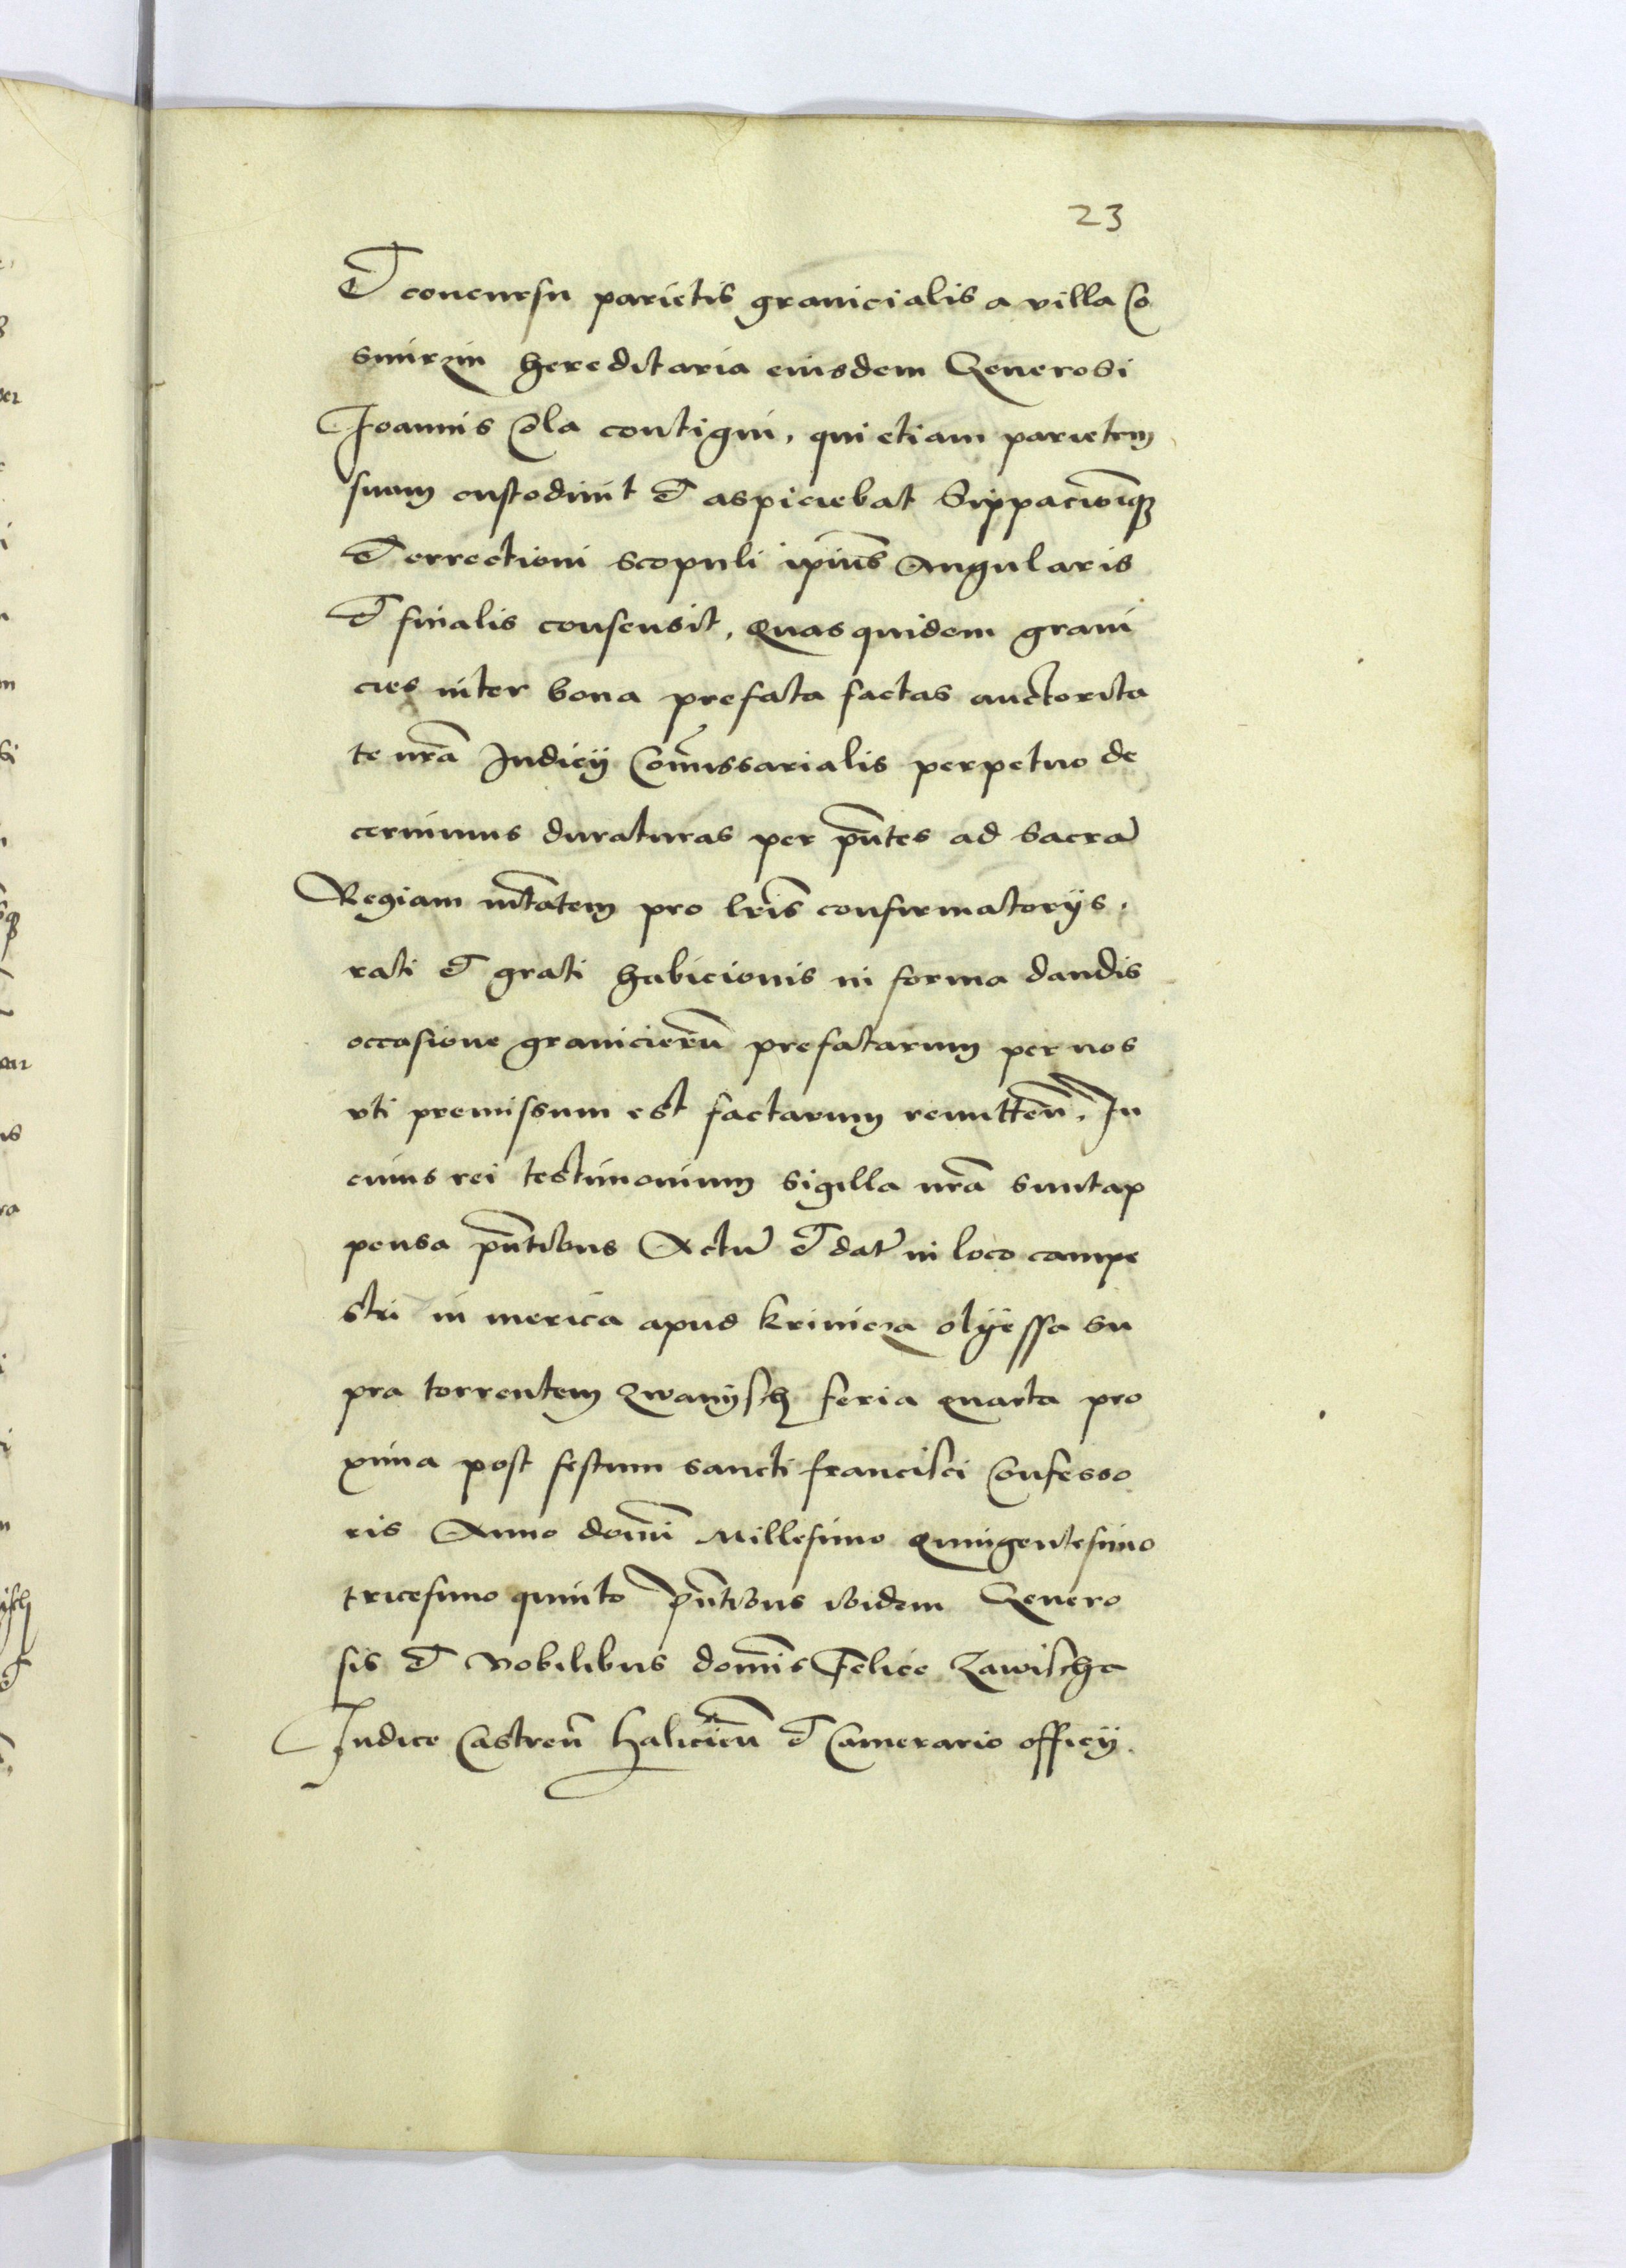 23
Et concursu parietis granicialis a villa Co
smirzin hereditaria eiusdem Generosi
Joannis Cola contigui, qui etiam parietem
suam custodiuit et aspiciebat Sippacioniq3
et errectioni scopuli ipiũs Angularis
et finalis consensit, Quas quidem grani
cies inter bona prefata factas auctorita
te nrã Judicÿ Com̃issarialis perpetuo de
cernimus duraturas per p̃ntes ad Sacrã
Regiam mtãtem pro lrĩs confirmatorÿs.
rati et grati habicionis in forma dandis
occasione granicierũ prefatarum per nos
vti premissum est factarum remitteñ. In
cuius rei testimonium Sigilla nrã sunt ap
pensa p̃ntibus Actũ et dat̃ in loco campe
stri in merica apud krinicza olÿessa Su
pra torrentem Zwanÿsch feria quarta pro
xima post festum sancti francisci Confesso
ris Anno domĩ Millesimo Quingentesimo
tricesimo quinto p̃ntibus ibidem Genero
sis et Nobilibus domĩs Felice Zawischa
Judice Castreñ halicieñ et Camerario officÿ.